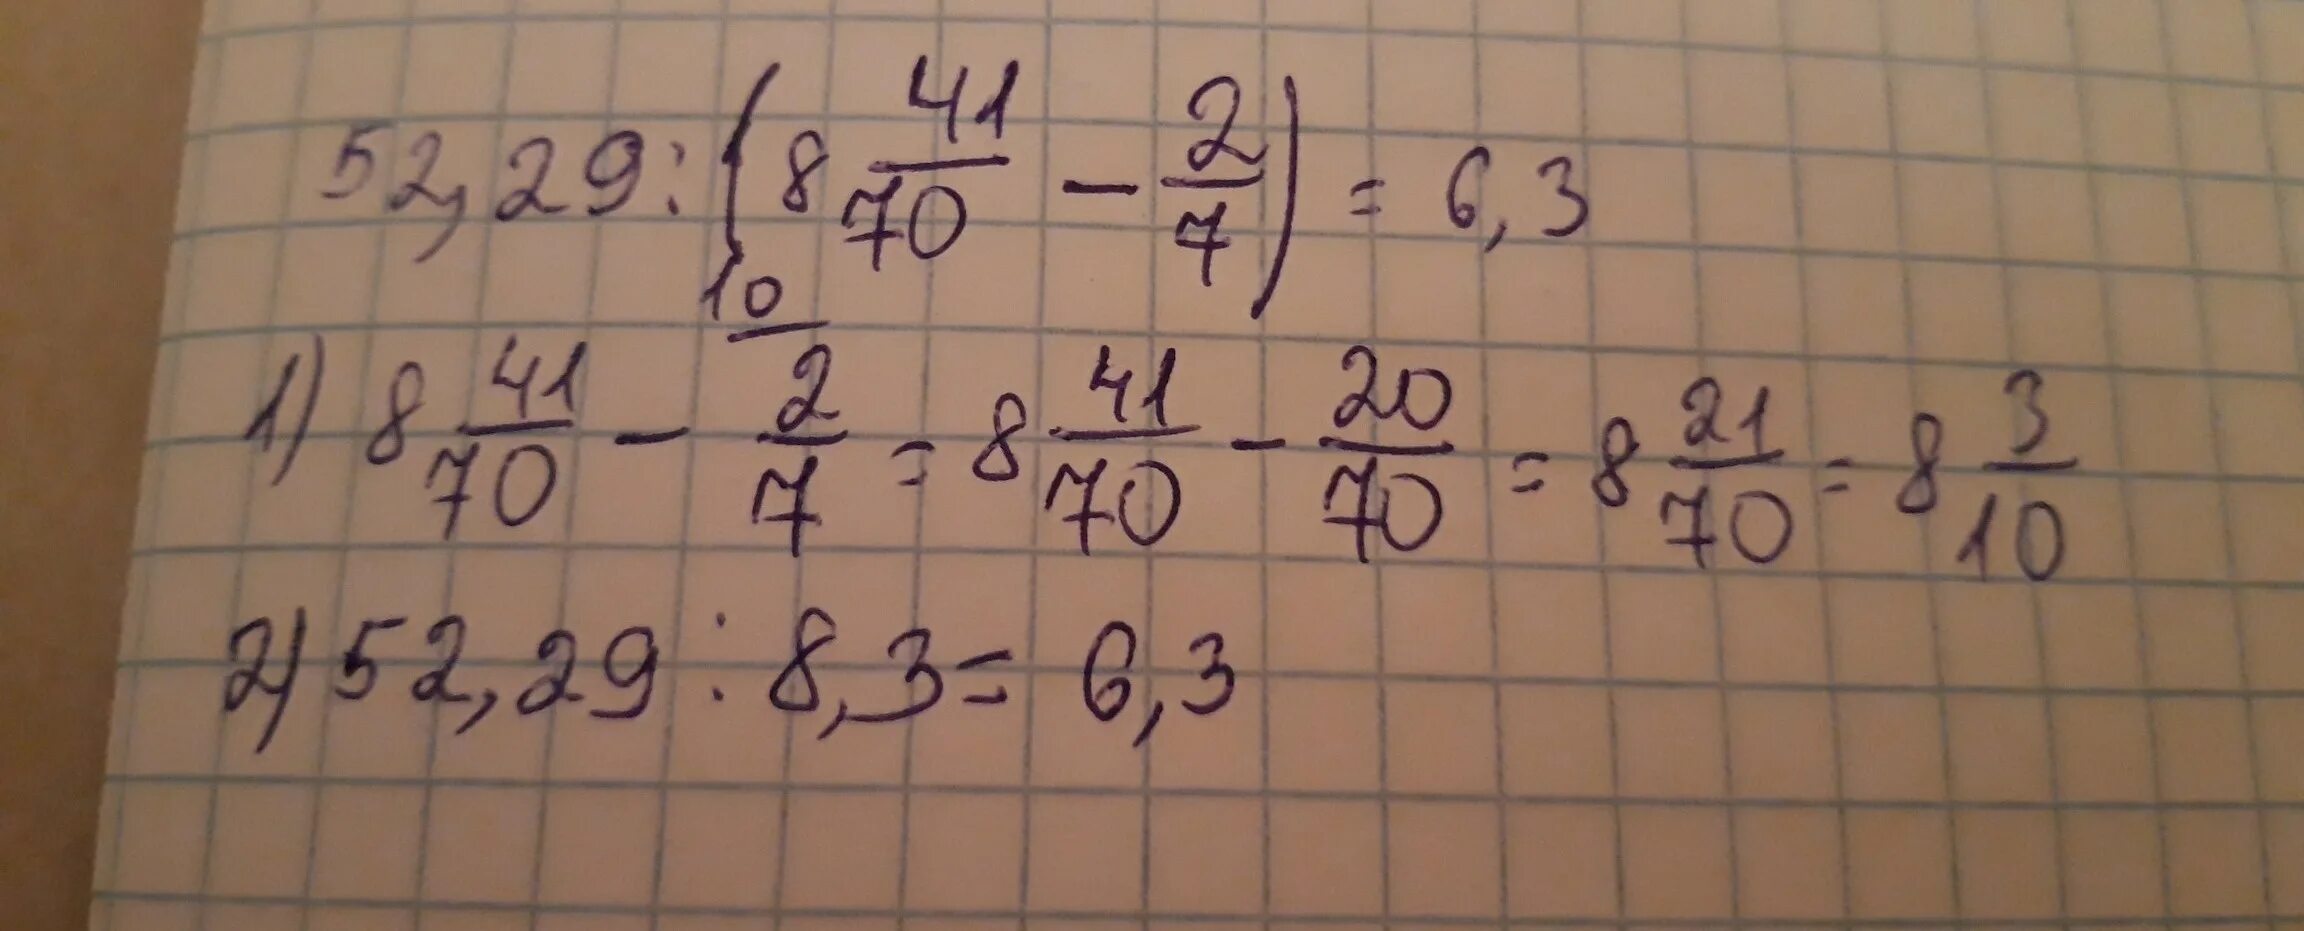 52,29:(8 41/70 - 2/7) = 6,3
1) 8 41/70 - 10 2/7 = 8 41/70 - 20/70 = 8 21/70 = 8 3/10
2) 52,29 : 8,3 = 6,3